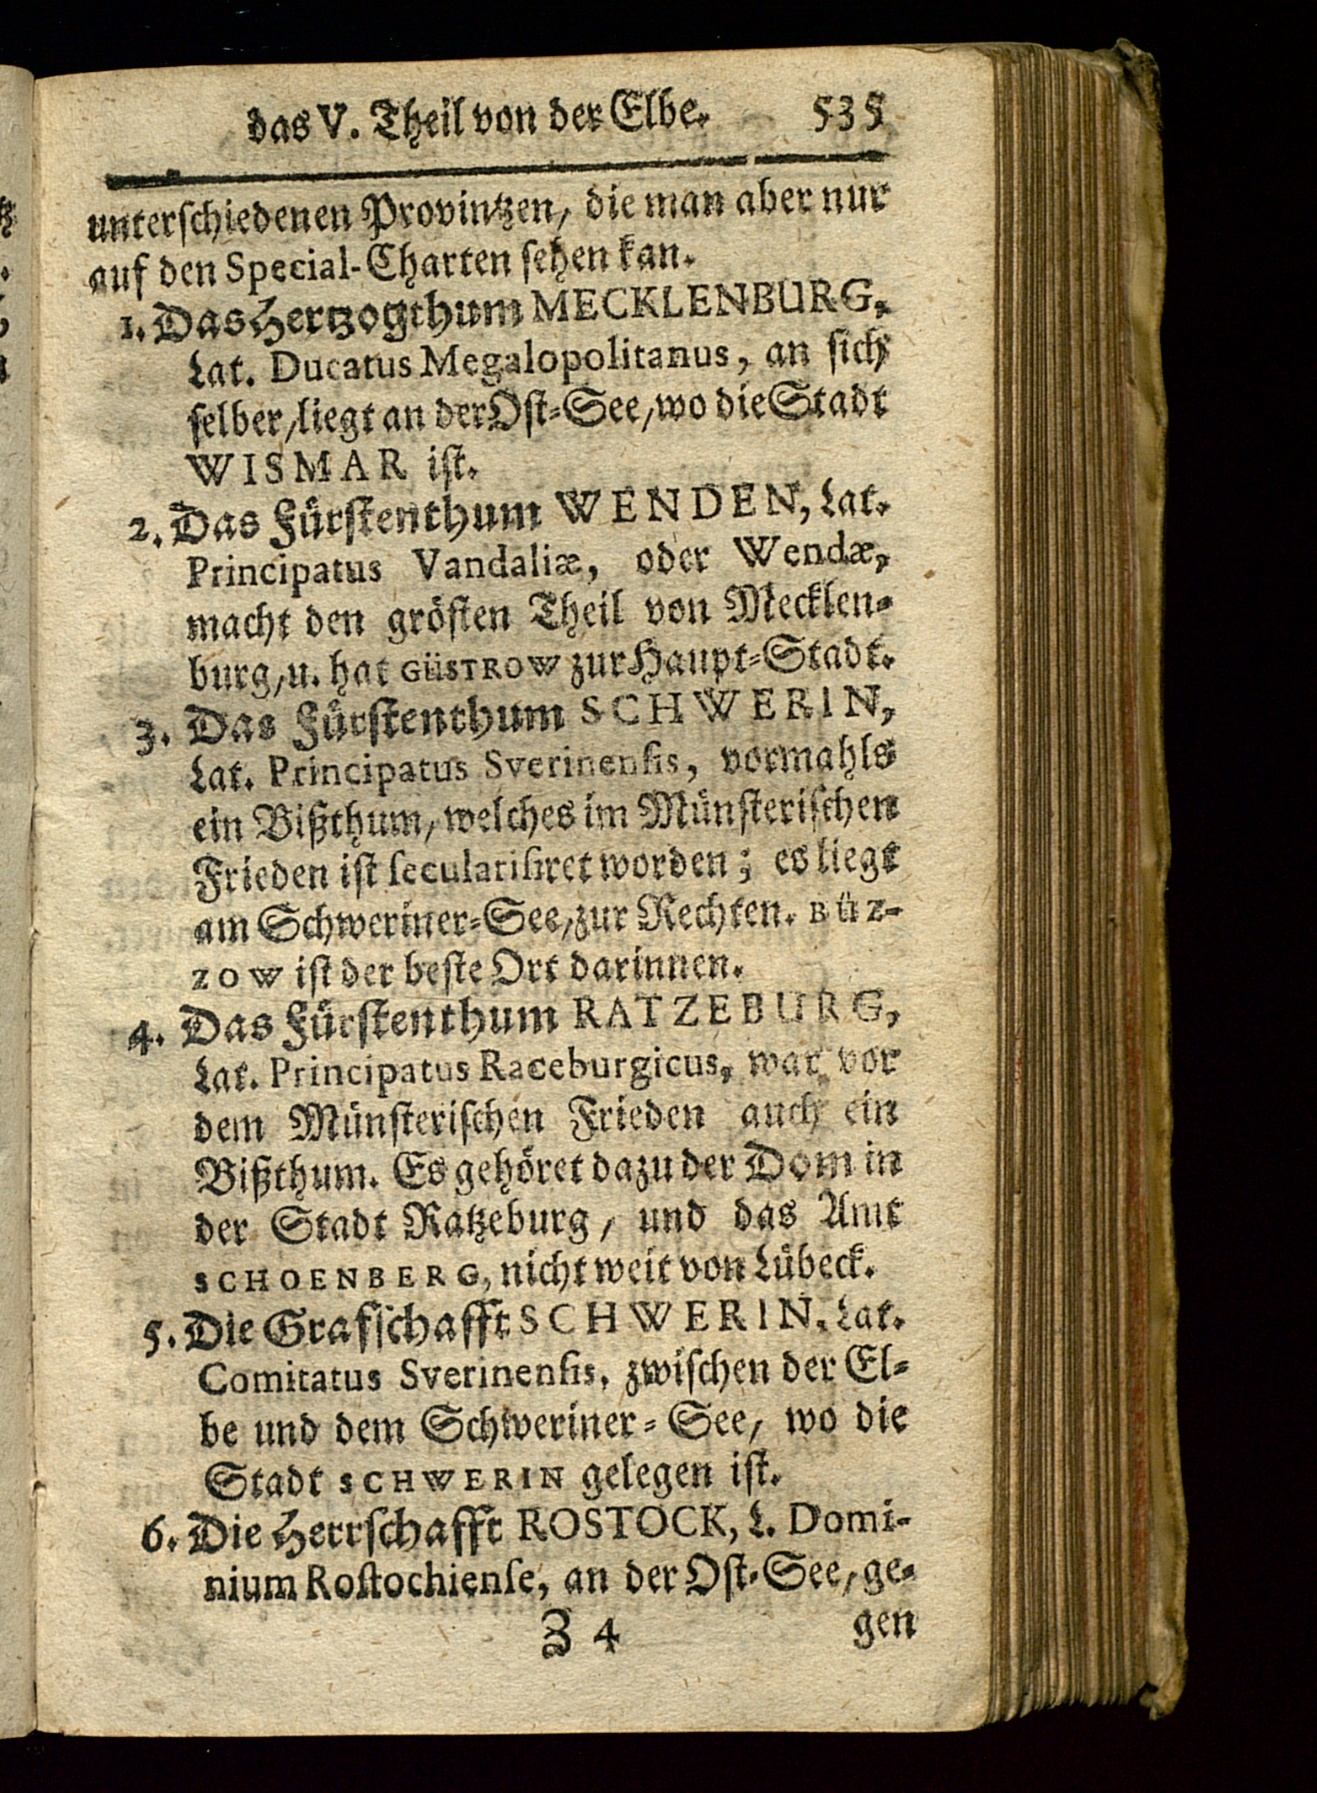 das V. Theil von der Elbe. 535
unterschiedenen Provintzen, die man aber nur
auf den Special-Charten sehen kan.
1. Das Hertzogthum MECKLENBURG,
Lat. Ducatus Megalopolitanus, an sich
selber, liegt an der Ost-See, wo die Stadt
WISMAR ist.
2. Das Fürstenthum WENDEN, Lat.
Principatus Vandaliæ, oder Wendæ,
macht den grösten Theil von Mecklen-
burg, u. hat GÜSTROW zur Haupt-Stadt.
3. Das Fürstenthum SCHWERIN,
Lat. Principatus Sverinensis, vormahls
ein Bißthum, welches im Münsterischen
Frieden ist secularisiret worden; es liegt
am Schweriner-See, zur Rechten. BÜZ-
ZOW ist der beste Ort darinnen.
4. Das Fürstenthum RATZEBURG,
Lat. Principatus Raceburgicus, war vor
dem Münsterischen Frieden auch ein
Bißthum. Es gehöret dazu der Dom in
der Stadt Ratzeburg, und das Amt
SCHOENBERG, nicht weit von Lübeck.
5. Die Grafschafft SCHWERIN, Lat.
Comitatus Sverinensis, zwischen der El-
be und dem Schweriner-See, wo die
Stadt SCHWERIN gelegen ist.
6. Die Herrschafft ROSTOCK, L. Domi-
nium Rostochiense, an der Ost-See, ge-
Z 4 gen